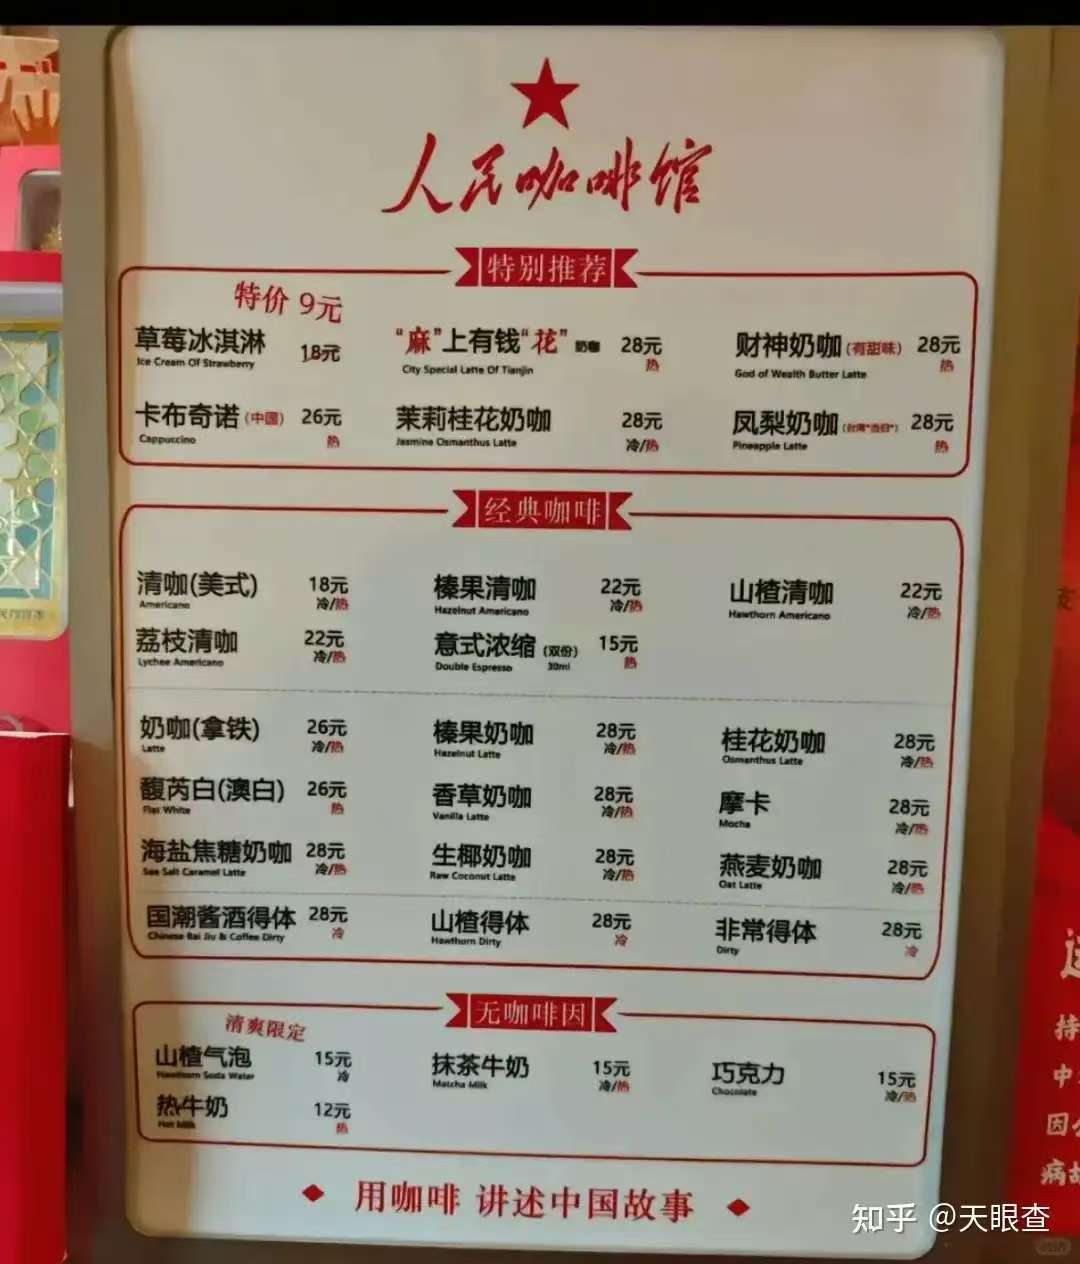 人民咖啡馆
特别推荐
特价 9元
草莓冰淇淋 18元
Ice Cream Of Strawberry
“麻”上有钱“花” 奶咖 28元
City Special Latte Of Tianjin 热
财神奶咖(有甜味) 28元
God of Wealth Butter Latte 热
卡布奇诺(中国) 26元
Cappuccino 热
茉莉桂花奶咖 28元
Jasmine Osmanthus Latte 冷/热
凤梨奶咖 28元
Pineapple Latte 热
经典咖啡
清咖(美式) 18元
Americano 冷/热
榛果清咖 22元
Hazelnut Americano 冷/热
山楂清咖 22元
Hawthorn Americano 冷/热
荔枝清咖 22元
Lychee Americano 冷/热
意式浓缩(双份) 15元
Double Espresso 30ml 热
奶咖(拿铁) 26元
Latte 冷/热
榛果奶咖 28元
Hazelnut Latte 冷/热
桂花奶咖 28元
Osmanthus Latte 冷/热
馥芮白(澳白) 26元
Flat White 热
香草奶咖 28元
Vanilla Latte 冷/热
摩卡 28元
Mocha 冷/热
海盐焦糖奶咖 28元
Sea Salt Caramel Latte 冷/热
生椰奶咖 28元
Raw Coconut Latte 冷/热
燕麦奶咖 28元
Oat Latte 冷/热
国潮酱酒得体 28元
Chinese Bai Jiu & Coffee Dirty 冷
山楂得体 28元
Hawthorn Dirty 冷
非常得体 28元
Dirty 冷
无咖啡因
清爽限定
山楂气泡 15元
Hawthorn Soda Water 冷
抹茶牛奶 15元
Matcha Milk 冷/热
巧克力 15元
Chocolate 冷/热
热牛奶 12元
Hot Milk 热
用咖啡 讲述中国故事
持
中
因
病
知乎 @天眼查